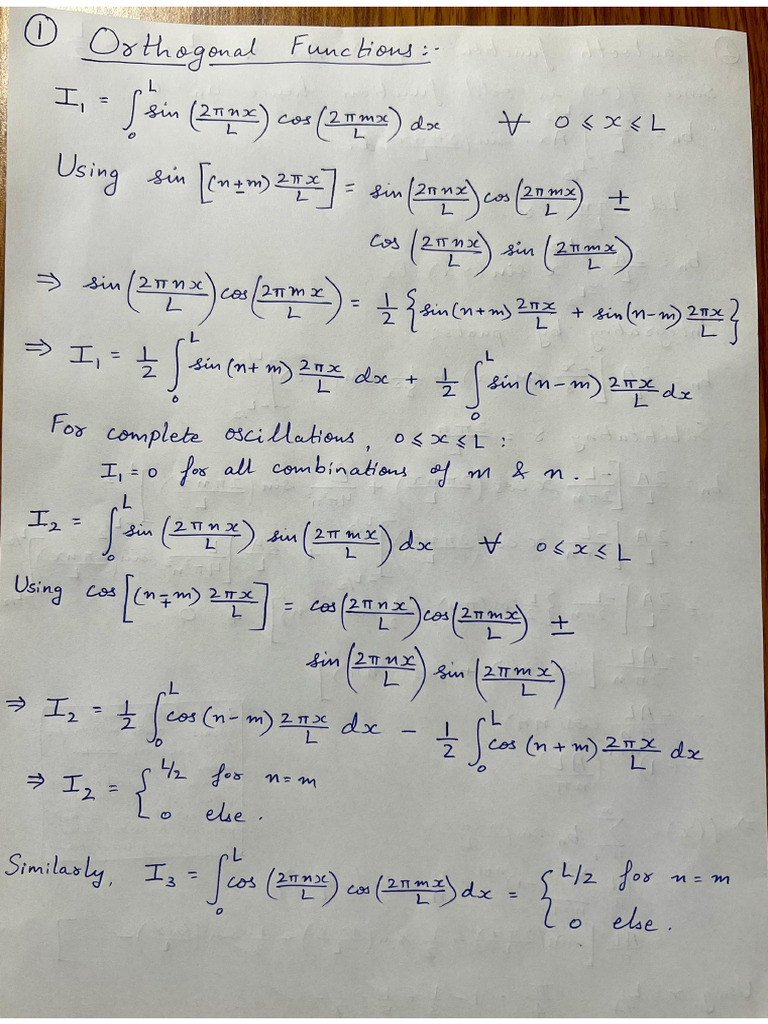 ① Orthogonal Functions:-
I₁ = ∫₀ᴸ sin(2πnx/L) cos(2πmx/L) dx ∀ 0 ≤ x ≤ L
Using sin[(n±m) 2πx/L] = sin(2πnx/L) cos(2πmx/L) ±
cos(2πnx/L) sin(2πmx/L)
⇒ sin(2πnx/L) cos(2πmx/L) = 1/2 {sin(n+m) 2πx/L + sin(n-m) 2πx/L}
⇒ I₁ = 1/2 ∫₀ᴸ sin(n+m) 2πx/L dx + 1/2 ∫₀ᴸ sin(n-m) 2πx/L dx
For complete oscillations, 0 ≤ x ≤ L :
I₁ = 0 for all combinations of m & n.
I₂ = ∫₀ᴸ sin(2πnx/L) sin(2πmx/L) dx ∀ 0 ≤ x ≤ L
Using cos[(n∓m) 2πx/L] = cos(2πnx/L) cos(2πmx/L) ±
sin(2πnx/L) sin(2πmx/L)
⇒ I₂ = 1/2 ∫₀ᴸ cos(n-m) 2πx/L dx - 1/2 ∫₀ᴸ cos(n+m) 2πx/L dx
⇒ I₂ = { L/2 for n=m
0 else.
Similarly, I₃ = ∫₀ᴸ cos(2πnx/L) cos(2πmx/L) dx = { L/2 for n=m
0 else.